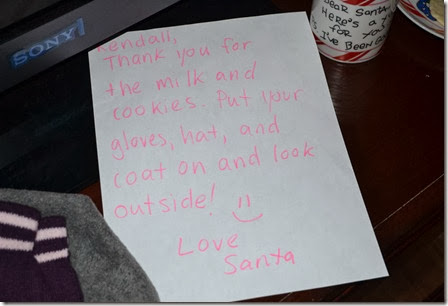 SONY
Kendall,
Thank you for
the milk and
cookies. Put your
gloves, hat, and
coat on and look
outside!
Love
Santa
Dear Santa
Here's a
for you
I've been